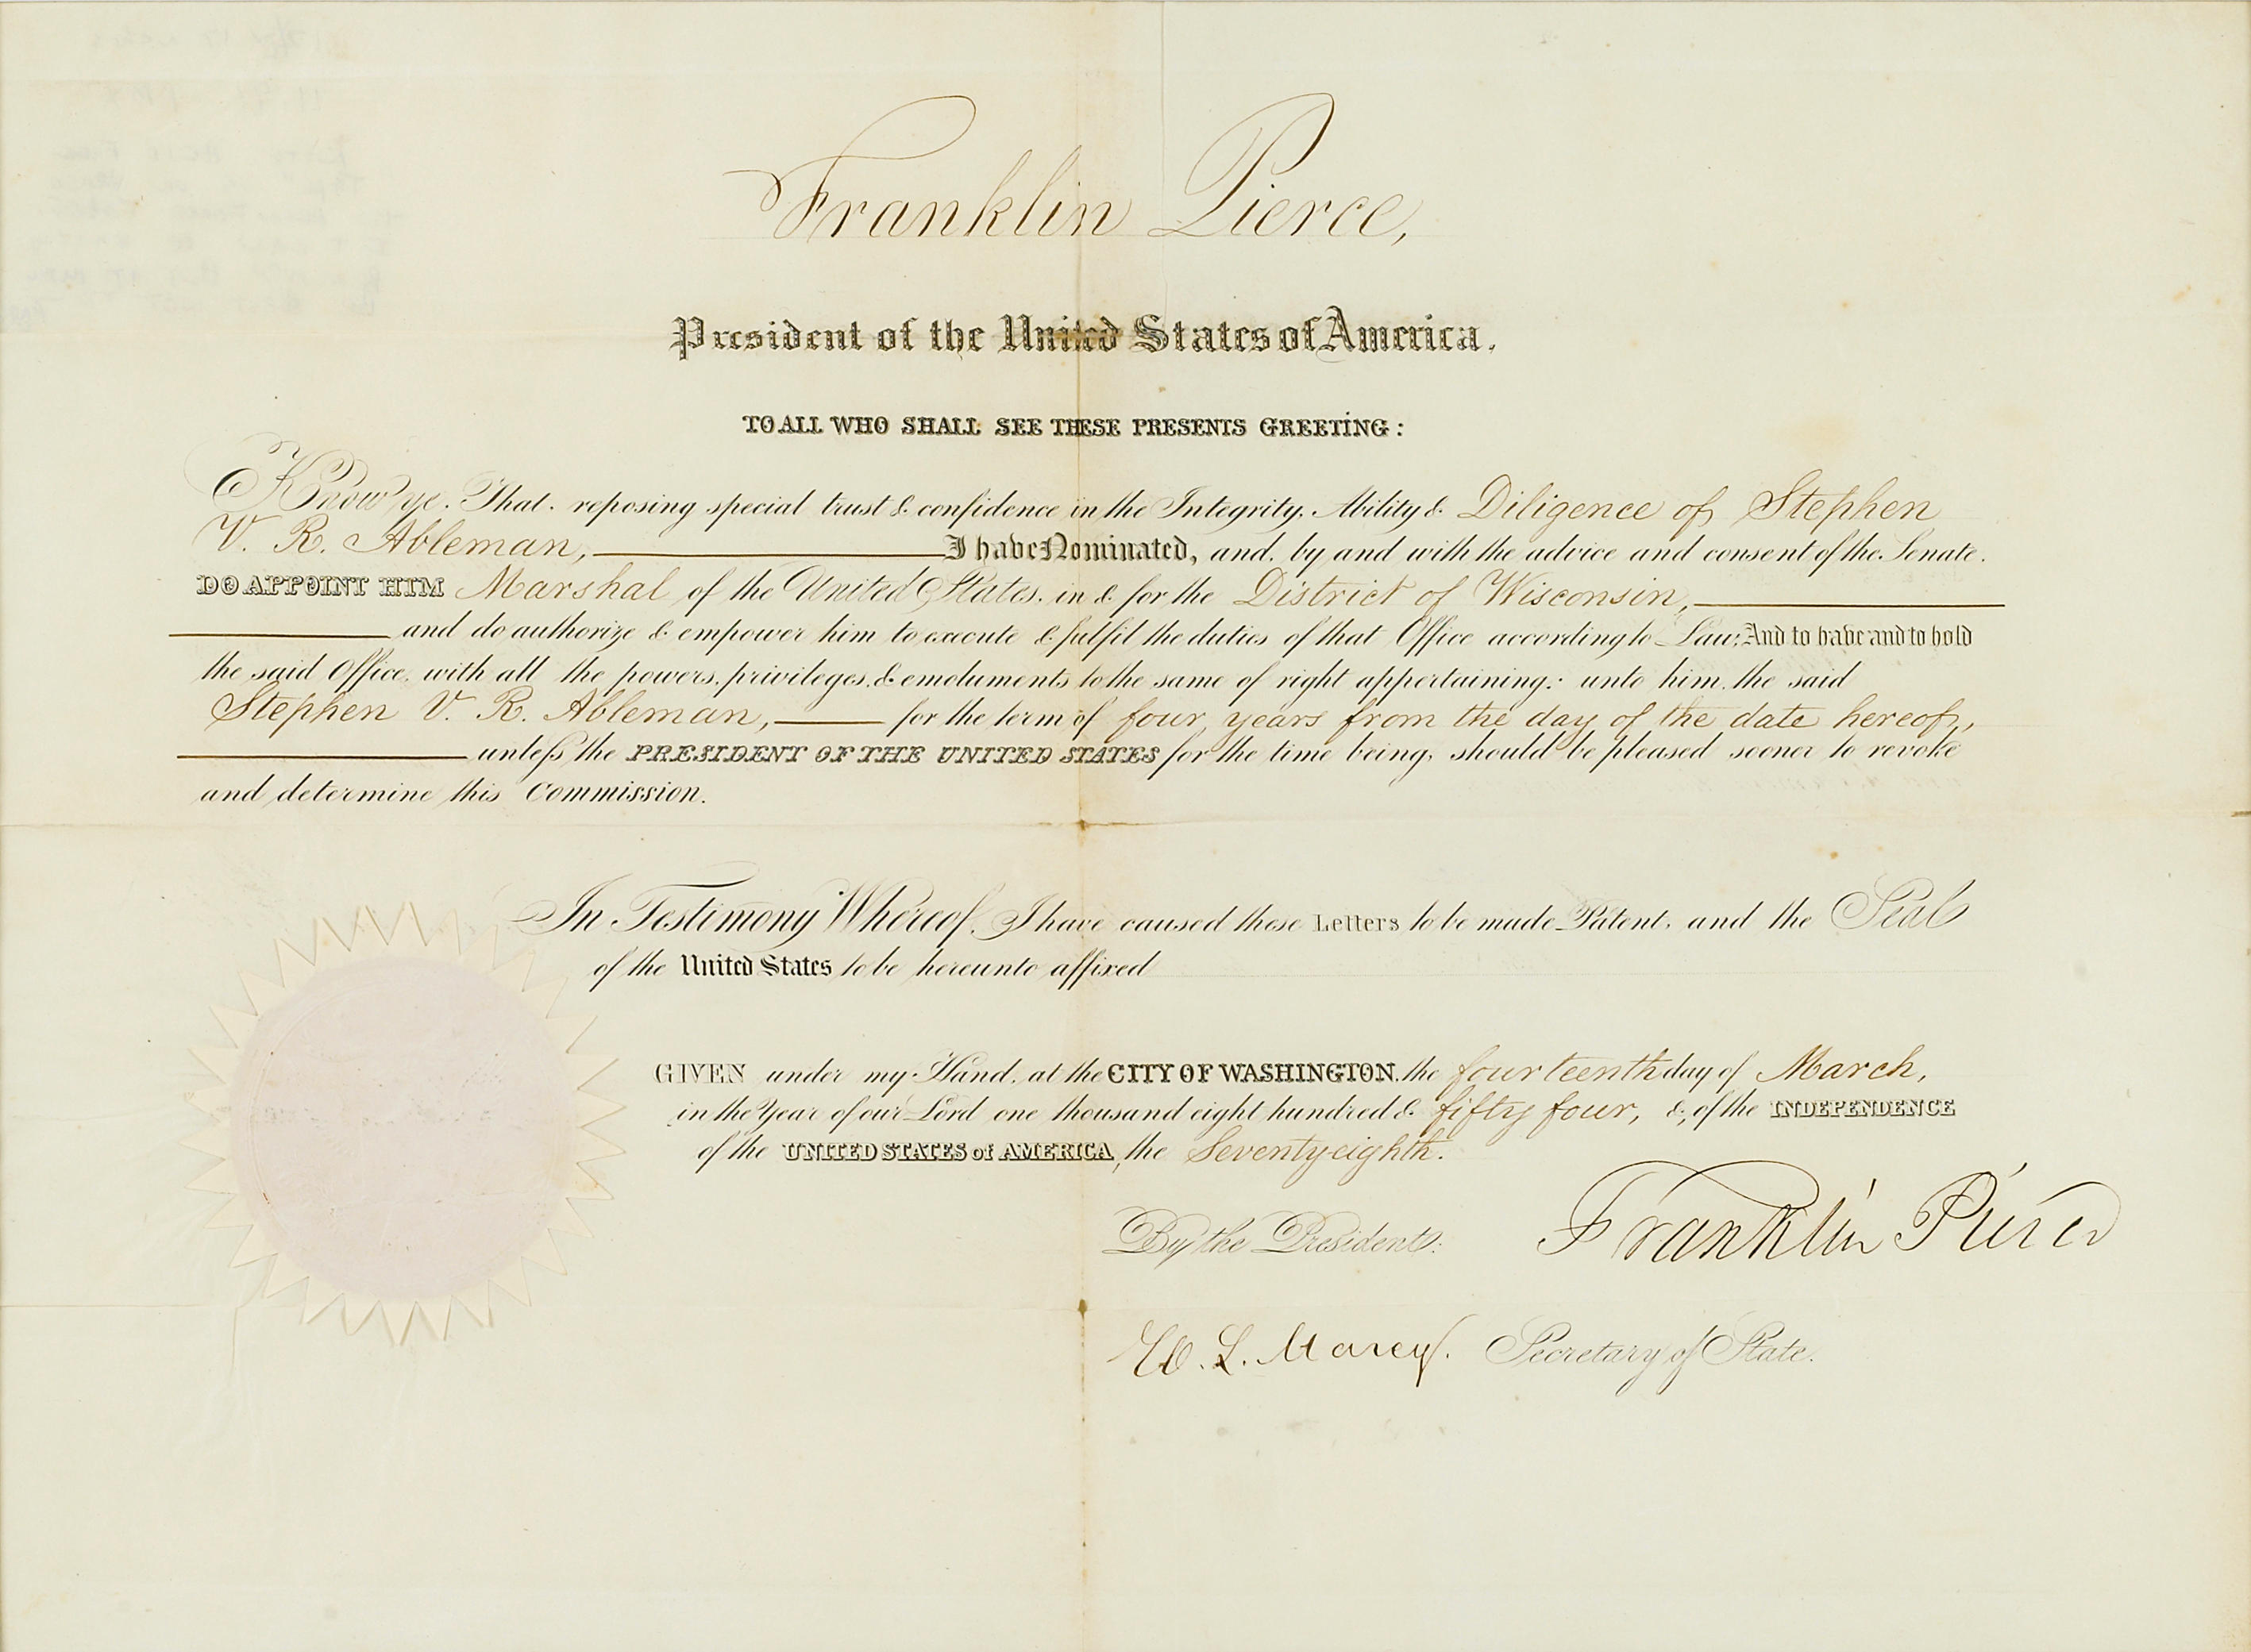 Franklin Pierce,
President of the United States of America.
TO ALL WHO SHALL SEE THESE PRESENTS GREETING:
Know ye. That. reposing special trust & confidence in the Integrity, Ability & Diligence of Stephen
V. R. Ableman, I have Nominated, and. by and with the advice and consent of the Senate.
DO APPOINT HIM Marshal of the United States, in & for the District of Wisconsin,
and do authorize & empower him to execute & fulfil the duties of that Office according to Law; And to have and to hold
the said Office, with all the powers, privileges, & emoluments to the same of right appertaining: unto him, the said
Stephen V. R. Ableman, for the term of four years from the day of the date hereof,
unless the PRESIDENT OF THE UNITED STATES for the time being, should be pleased sooner to revoke
and determine this Commission.
In Testimony Whereof, I have caused these Letters to be made Patent, and the Seal
of the United States to be hereunto affixed
GIVEN under my Hand, at the CITY OF WASHINGTON, the fourteenth day of March,
in the Year of our Lord one thousand eight hundred & fifty four, &, of the INDEPENDENCE
of the UNITED STATES of AMERICA, the Seventy-eighth.
By the President: Franklin Pierce
W. L. Marcy. Secretary of State.